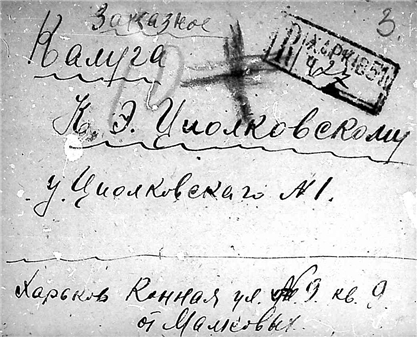 Заказное
3.
Калуга
Харків 51
422
К. Э. Циолковскому
у. Циолковскаго №1.
Харьков Конная ул. №9. кв. 9.
от Малковых.